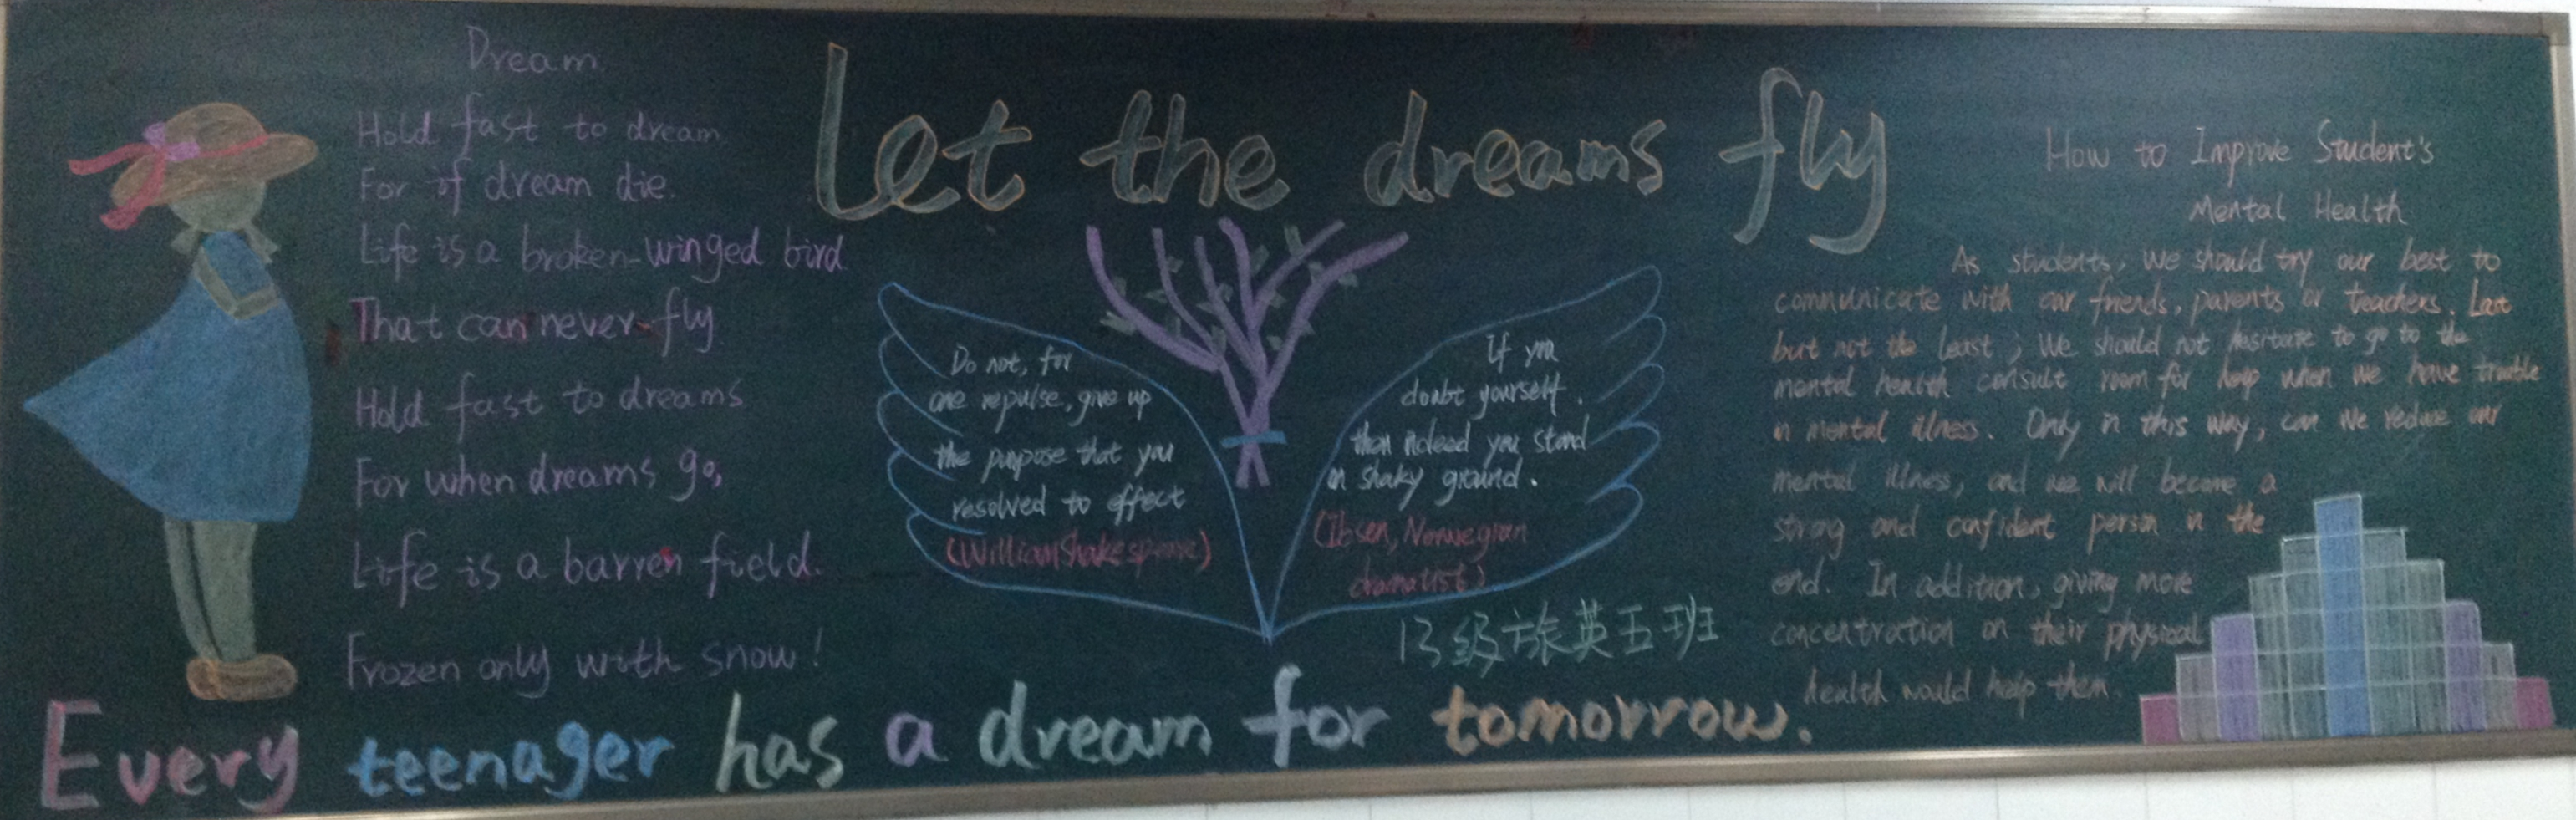 Dream.
Hold fast to dream
For if dream die.
Life is a broken-winged bird
That can never fly
Hold fast to dreams
For when dreams go,
Life is a barren field.
Frozen only with snow!
Let the dreams fly
Do not, for
one repulse, give up
the purpose that you
resolved to effect
(William Shakespeare)
If you
doubt yourself.
then indeed you stand
on shaky ground.
(Ibsen, Norwegian
dramatist)
13级旅英五班
How to Improve Student's
Mental Health
As students, we should try our best to
communicate with our friends, parents or teachers. Last
but not the least, We should not hesitate to go to the
mental health consult room for help when we have trouble
in mental illness. Only in this way, can we reduce our
mental illness, and we will become a
strong and confident person in the
end. In addition, giving more
concentration on their physical
health would help them.
Every teenager has a dream for tomorrow.